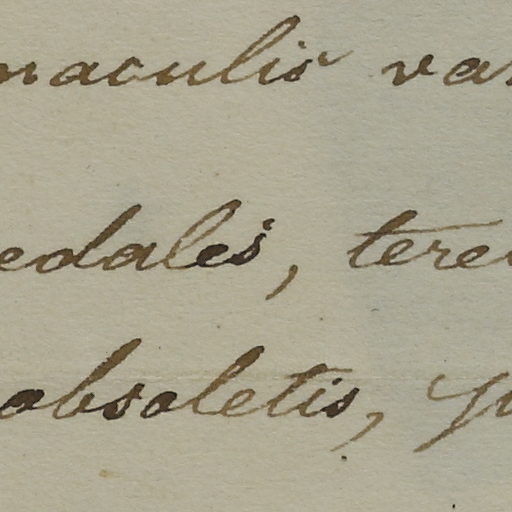 maculis va
edales, tere
obsoletis,